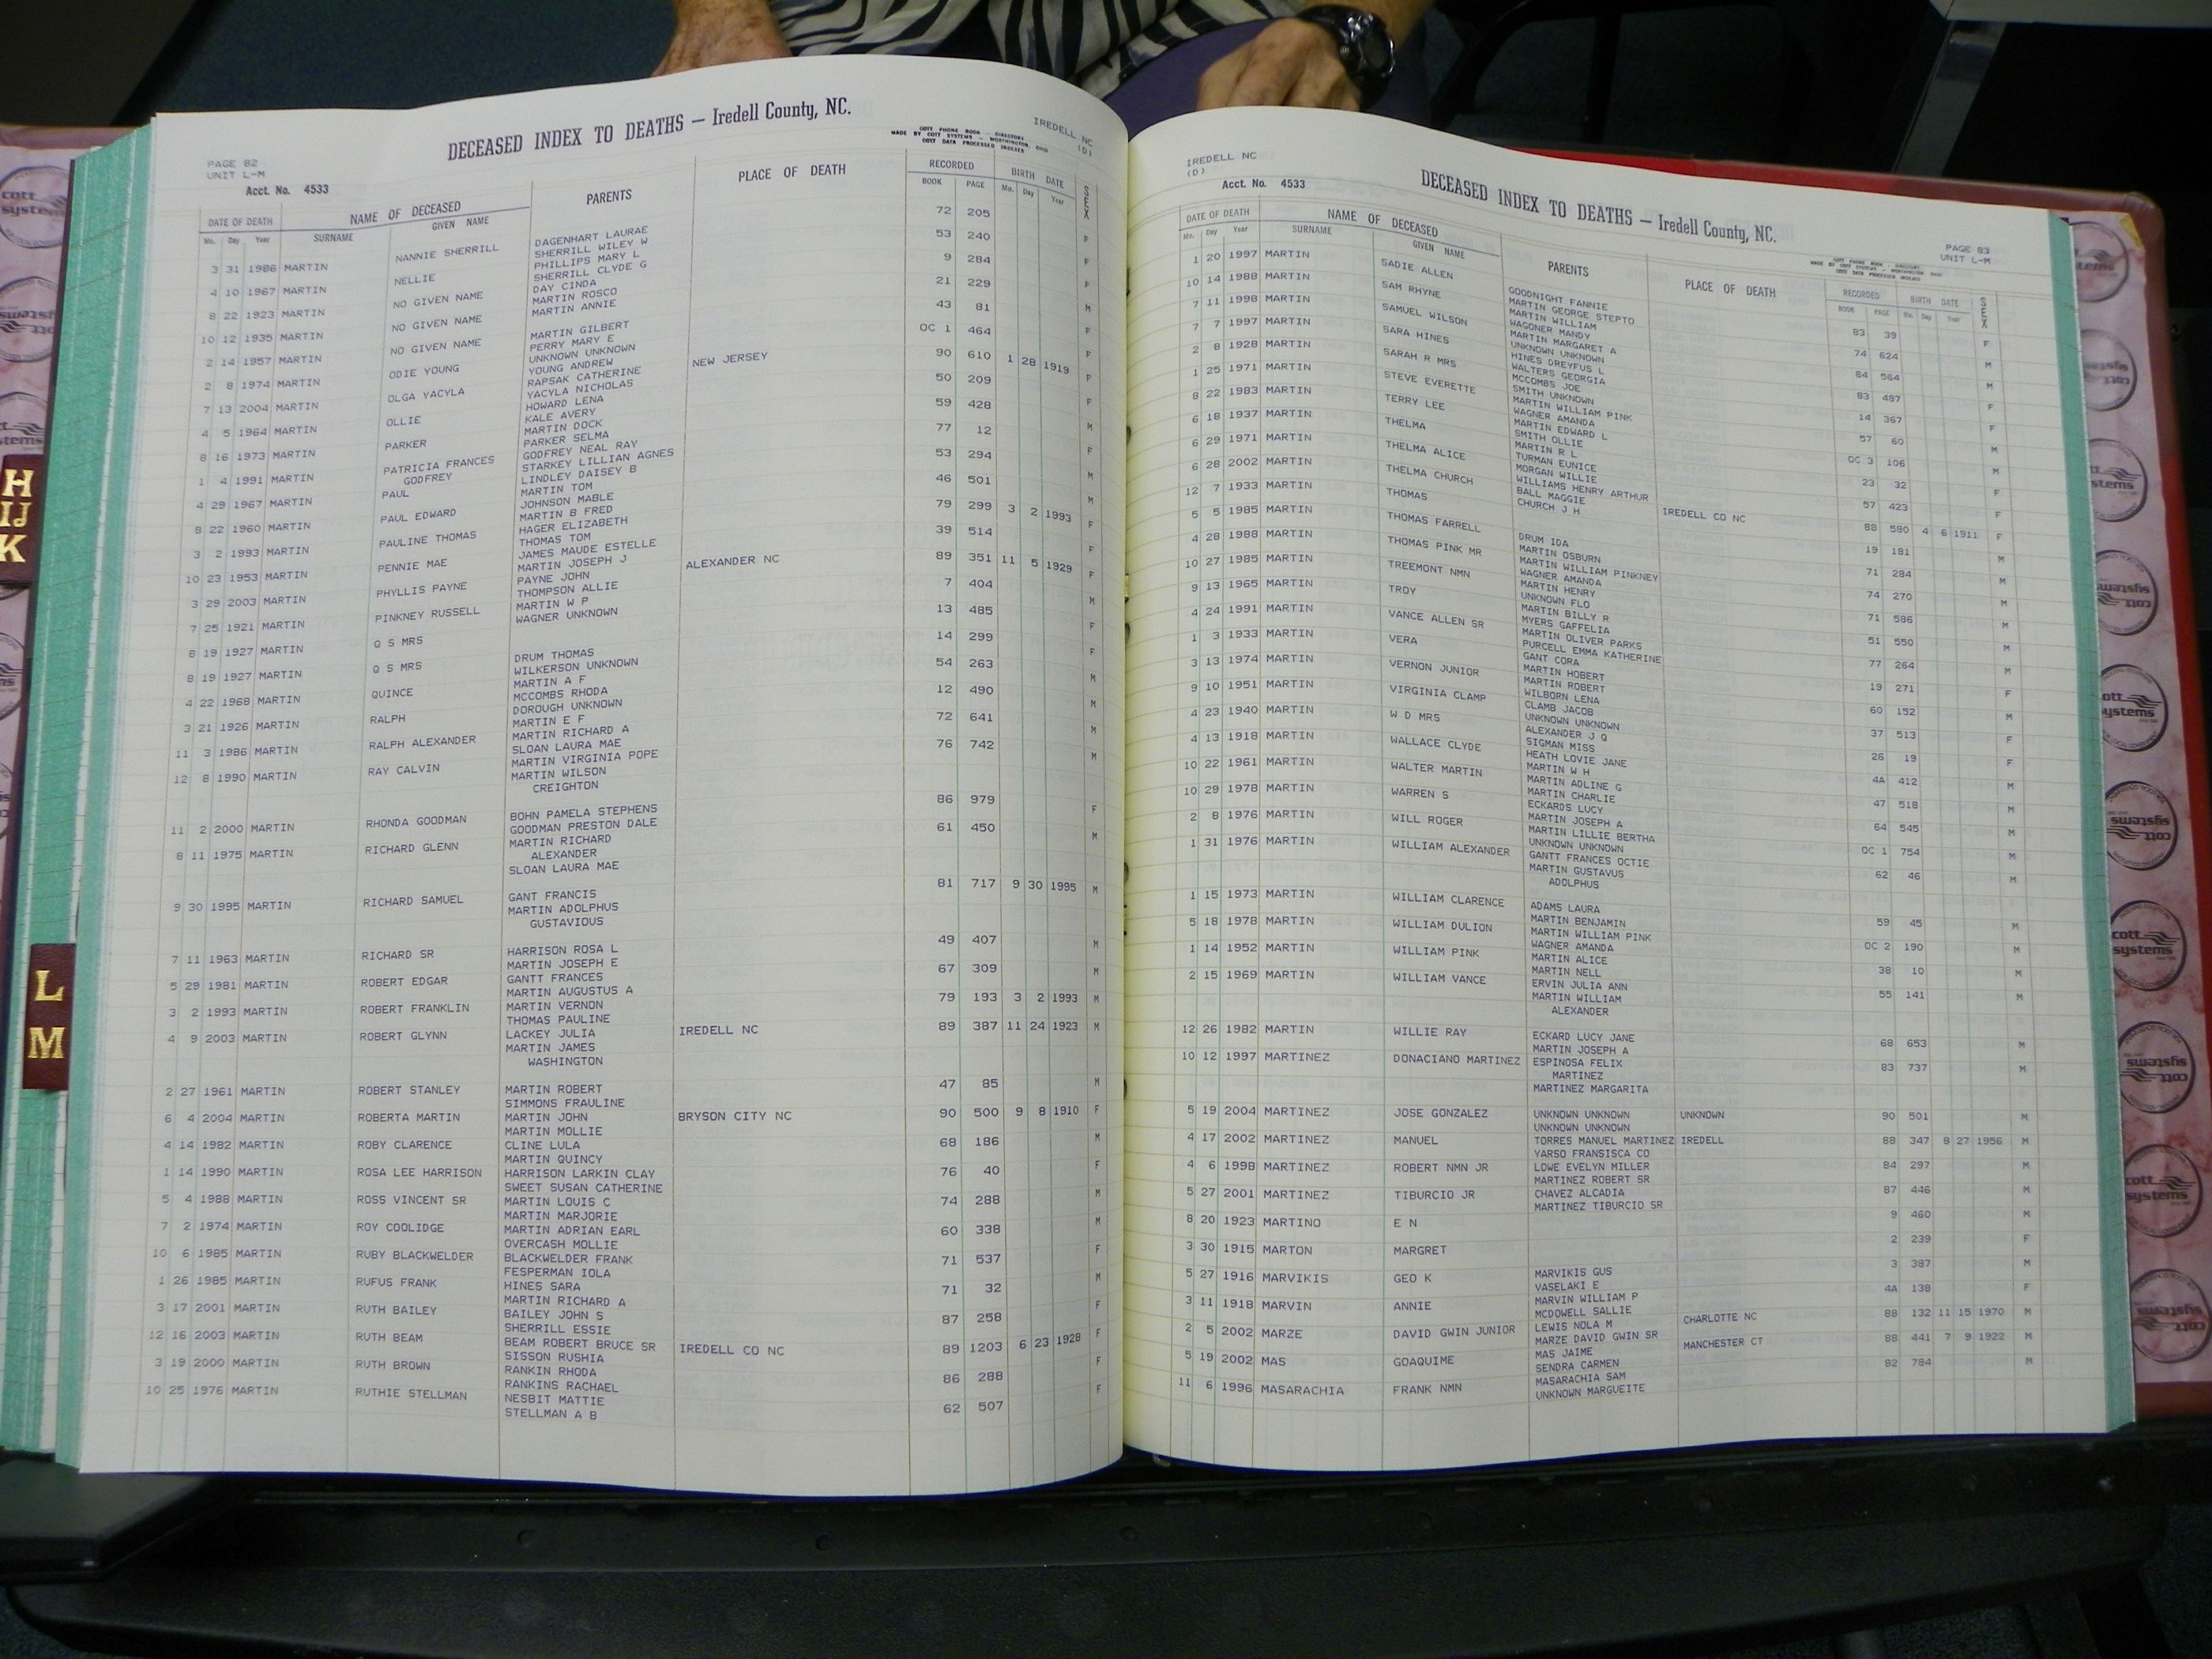 DECEASED INDEX TO DEATHS — Iredell County, NC.
IREDELL NC
(D)
COTT PHONE BOOK - DIRECTORY
MADE BY COTT SYSTEMS - WORTHINGTON, OHIO
COTT DATA PROCESSED INDEXES
PAGE 82
UNIT L-M
Acct. No. 4533
DATE OF DEATH NAME OF DECEASED PARENTS PLACE OF DEATH RECORDED BIRTH DATE SEX
Mo. Day Year SURNAME GIVEN NAME BOOK PAGE Mo. Day Year
3 31 1986 MARTIN NANNIE SHERRILL DAGENHART LAURAE 72 205 F
SHERRILL WILEY W
4 10 1967 MARTIN NELLIE PHILLIPS MARY L 53 240 F
SHERRILL CLYDE G
8 22 1923 MARTIN NO GIVEN NAME DAY CINDA 9 284 F
MARTIN ROSCO
10 12 1935 MARTIN NO GIVEN NAME MARTIN ANNIE 21 229 M
2 14 1957 MARTIN NO GIVEN NAME MARTIN GILBERT 43 81 F
PERRY MARY E
2 8 1974 MARTIN ODIE YOUNG UNKNOWN UNKNOWN OC 1 464 F
YOUNG ANDREW
7 13 2004 MARTIN OLGA YACYLA RAPSAK CATHERINE NEW JERSEY 90 610 1 28 1919 F
YACYLA NICHOLAS
4 5 1964 MARTIN OLLIE HOWARD LENA 50 209 F
KALE AVERY
8 16 1973 MARTIN PARKER MARTIN DOCK 59 428 M
PARKER SELMA
1 4 1991 MARTIN PATRICIA FRANCES GODFREY NEAL RAY 77 12 F
GODFREY STARKEY LILLIAN AGNES
4 29 1967 MARTIN PAUL LINDLEY DAISEY B 53 294 M
MARTIN TOM
8 22 1960 MARTIN PAUL EDWARD JOHNSON MABLE 46 501 M
MARTIN B FRED
3 2 1993 MARTIN PAULINE THOMAS HAGER ELIZABETH 79 299 3 2 1993 F
THOMAS TOM
10 23 1953 MARTIN PENNIE MAE JAMES MAUDE ESTELLE 39 514 F
MARTIN JOSEPH J
3 29 2003 MARTIN PHYLLIS PAYNE PAYNE JOHN ALEXANDER NC 89 351 11 5 1929 F
THOMPSON ALLIE
7 25 1921 MARTIN PINKNEY RUSSELL MARTIN W P 7 404 M
WAGNER UNKNOWN
8 19 1927 MARTIN Q S MRS 13 485 F
8 19 1927 MARTIN Q S MRS DRUM THOMAS 14 299 F
WILKERSON UNKNOWN
4 22 1968 MARTIN QUINCE MARTIN A F 54 263 M
MCCOMBS RHODA
3 21 1926 MARTIN RALPH DOROUGH UNKNOWN 12 490 M
MARTIN E F
11 3 1986 MARTIN RALPH ALEXANDER MARTIN RICHARD A 72 641 M
SLOAN LAURA MAE
12 8 1990 MARTIN RAY CALVIN MARTIN VIRGINIA POPE 76 742 M
MARTIN WILSON
CREIGHTON
11 2 2000 MARTIN RHONDA GOODMAN BOHN PAMELA STEPHENS 86 979 F
GOODMAN PRESTON DALE
8 11 1975 MARTIN RICHARD GLENN MARTIN RICHARD 61 450 M
ALEXANDER
SLOAN LAURA MAE
9 30 1995 MARTIN RICHARD SAMUEL GANT FRANCIS 81 717 9 30 1995 M
MARTIN ADOLPHUS
GUSTAVIOUS
7 11 1963 MARTIN RICHARD SR HARRISON ROSA L 49 407 M
MARTIN JOSEPH E
5 29 1981 MARTIN ROBERT EDGAR GANTT FRANCES 67 309 M
MARTIN AUGUSTUS A
3 2 1993 MARTIN ROBERT FRANKLIN MARTIN VERNON 79 193 3 2 1993 M
THOMAS PAULINE
4 9 2003 MARTIN ROBERT GLYNN LACKEY JULIA IREDELL NC 89 387 11 24 1923 M
MARTIN JAMES
WASHINGTON
2 27 1961 MARTIN ROBERT STANLEY MARTIN ROBERT 47 85 M
SIMMONS FRAULINE
6 4 2004 MARTIN ROBERTA MARTIN MARTIN JOHN BRYSON CITY NC 90 500 9 8 1910 F
MARTIN MOLLIE
4 14 1982 MARTIN ROBY CLARENCE CLINE LULA 68 186 M
MARTIN QUINCY
1 14 1990 MARTIN ROSA LEE HARRISON HARRISON LARKIN CLAY 76 40 F
SWEET SUSAN CATHERINE
5 4 1988 MARTIN ROSS VINCENT SR MARTIN LOUIS C 74 288 M
MARTIN MARJORIE
7 2 1974 MARTIN ROY COOLIDGE MARTIN ADRIAN EARL 60 338 M
OVERCASH MOLLIE
10 6 1985 MARTIN RUBY BLACKWELDER BLACKWELDER FRANK 71 537 F
FESPERMAN IOLA
1 26 1985 MARTIN RUFUS FRANK HINES SARA 71 32 M
MARTIN RICHARD A
3 17 2001 MARTIN RUTH BAILEY BAILEY JOHN S 87 258 F
SHERRILL ESSIE
12 16 2003 MARTIN RUTH BEAM BEAM ROBERT BRUCE SR IREDELL CO NC 89 1203 6 23 1928 F
SISSON RUSHIA
3 19 2000 MARTIN RUTH BROWN RANKIN RHODA 86 288 F
RANKINS RACHAEL
10 25 1976 MARTIN RUTHIE STELLMAN NESBIT MATTIE 62 507 F
STELLMAN A B
IREDELL NC
(D)
Acct. No. 4533
DECEASED INDEX TO DEATHS — Iredell County, NC.
PAGE 83
UNIT L-M
COTT PHONE BOOK - DIRECTORY
MADE BY COTT SYSTEMS - WORTHINGTON, OHIO
COTT DATA PROCESSED INDEXES
DATE OF DEATH NAME OF DECEASED PARENTS PLACE OF DEATH RECORDED BIRTH DATE SEX
Mo. Day Year SURNAME GIVEN NAME BOOK PAGE Mo. Day Year
1 20 1997 MARTIN SADIE ALLEN GOODNIGHT FANNIE 83 39 F
MARTIN GEORGE STEPTO
10 14 1988 MARTIN SAM RHYNE MARTIN WILLIAM 74 624 M
WAGONER MANDY
7 11 1998 MARTIN SAMUEL WILSON MARTIN MARGARET A 84 564 M
UNKNOWN UNKNOWN
7 7 1997 MARTIN SARA HINES HINES DREYFUS L 83 487 F
WALTERS GEORGIA
2 8 1928 MARTIN SARAH R MRS MCCOMBS JOE 14 367 F
SMITH UNKNOWN
1 25 1971 MARTIN STEVE EVERETTE MARTIN WILLIAM PINK 57 60 M
WAGNER AMANDA
8 22 1983 MARTIN TERRY LEE MARTIN EDWARD L OC 3 106 M
SMITH OLLIE
6 18 1937 MARTIN THELMA MARTIN R L 23 32 F
TURMAN EUNICE
6 29 1971 MARTIN THELMA ALICE MORGAN WILLIE 57 423 F
WILLIAMS HENRY ARTHUR
6 28 2002 MARTIN THELMA CHURCH BALL MAGGIE IREDELL CO NC 88 580 4 6 1911 F
CHURCH J H
12 7 1933 MARTIN THOMAS 19 181 M
5 5 1985 MARTIN THOMAS FARRELL DRUM IDA 71 284 M
MARTIN OSBURN
4 28 1988 MARTIN THOMAS PINK MR MARTIN WILLIAM PINKNEY 74 270 M
WAGNER AMANDA
10 27 1985 MARTIN TREEMONT NMN MARTIN HENRY 71 586 M
UNKNOWN FLO
9 13 1965 MARTIN TROY MARTIN BILLY R 51 550 M
MYERS GAFFELIA
4 24 1991 MARTIN VANCE ALLEN SR MARTIN OLIVER PARKS 77 264 M
PURCELL EMMA KATHERINE
1 3 1933 MARTIN VERA GANT CORA 19 271 F
MARTIN HOBERT
3 13 1974 MARTIN VERNON JUNIOR MARTIN ROBERT 60 152 M
WILBORN LENA
9 10 1951 MARTIN VIRGINIA CLAMP CLAMB JACOB 37 513 F
UNKNOWN UNKNOWN
4 23 1940 MARTIN W D MRS ALEXANDER J Q 26 19 F
SIGMAN MISS
4 13 1918 MARTIN WALLACE CLYDE HEATH LOVIE JANE 4A 412 M
MARTIN W H
10 22 1961 MARTIN WALTER MARTIN MARTIN ADLINE G 47 518 M
MARTIN CHARLIE
10 29 1978 MARTIN WARREN S ECKARDS LUCY 64 545 M
MARTIN JOSEPH A
2 8 1976 MARTIN WILL ROGER MARTIN LILLIE BERTHA OC 1 754 M
UNKNOWN UNKNOWN
1 31 1976 MARTIN WILLIAM ALEXANDER GANTT FRANCES OCTIE 62 46 M
MARTIN GUSTAVUS
ADOLPHUS
1 15 1973 MARTIN WILLIAM CLARENCE ADAMS LAURA 59 45 M
MARTIN BENJAMIN
5 18 1978 MARTIN WILLIAM DULION MARTIN WILLIAM PINK OC 2 190 M
WAGNER AMANDA
1 14 1952 MARTIN WILLIAM PINK MARTIN ALICE 38 10 M
MARTIN NELL
2 15 1969 MARTIN WILLIAM VANCE ERVIN JULIA ANN 55 141 M
MARTIN WILLIAM
ALEXANDER
12 26 1982 MARTIN WILLIE RAY ECKARD LUCY JANE 68 653 M
MARTIN JOSEPH A
10 12 1997 MARTINEZ DONACIANO MARTINEZ ESPINOSA FELIX 83 737 M
MARTINEZ
MARTINEZ MARGARITA
5 19 2004 MARTINEZ JOSE GONZALEZ UNKNOWN UNKNOWN UNKNOWN 90 501 M
UNKNOWN UNKNOWN
4 17 2002 MARTINEZ MANUEL TORRES MANUEL MARTINEZ IREDELL 88 347 8 27 1956 M
YARSO FRANSISCA CO
4 6 1998 MARTINEZ ROBERT NMN JR LOWE EVELYN MILLER 84 297 M
MARTINEZ ROBERT SR
5 27 2001 MARTINEZ TIBURCIO JR CHAVEZ ALCADIA 87 446 M
MARTINEZ TIBURCIO SR
8 20 1923 MARTINO E N 9 460 M
3 30 1915 MARTON MARGRET 2 239 F
5 27 1916 MARVIKIS GEO K MARVIKIS GUS 3 387 M
VASELAKI E
3 11 1918 MARVIN ANNIE MARVIN WILLIAM P 4A 138 F
MCDOWELL SALLIE
2 5 2002 MARZE DAVID GWIN JUNIOR LEWIS NOLA M CHARLOTTE NC 88 132 11 15 1970 M
MARZE DAVID GWIN SR
5 19 2002 MAS GOAQUIME MAS JAIME MANCHESTER CT 88 441 7 9 1922 M
SENDRA CARMEN
11 6 1996 MASARACHIA FRANK NMN MASARACHIA SAM 82 784 M
UNKNOWN MARGUEITE
H
IJ
K
L
M
cott
systems